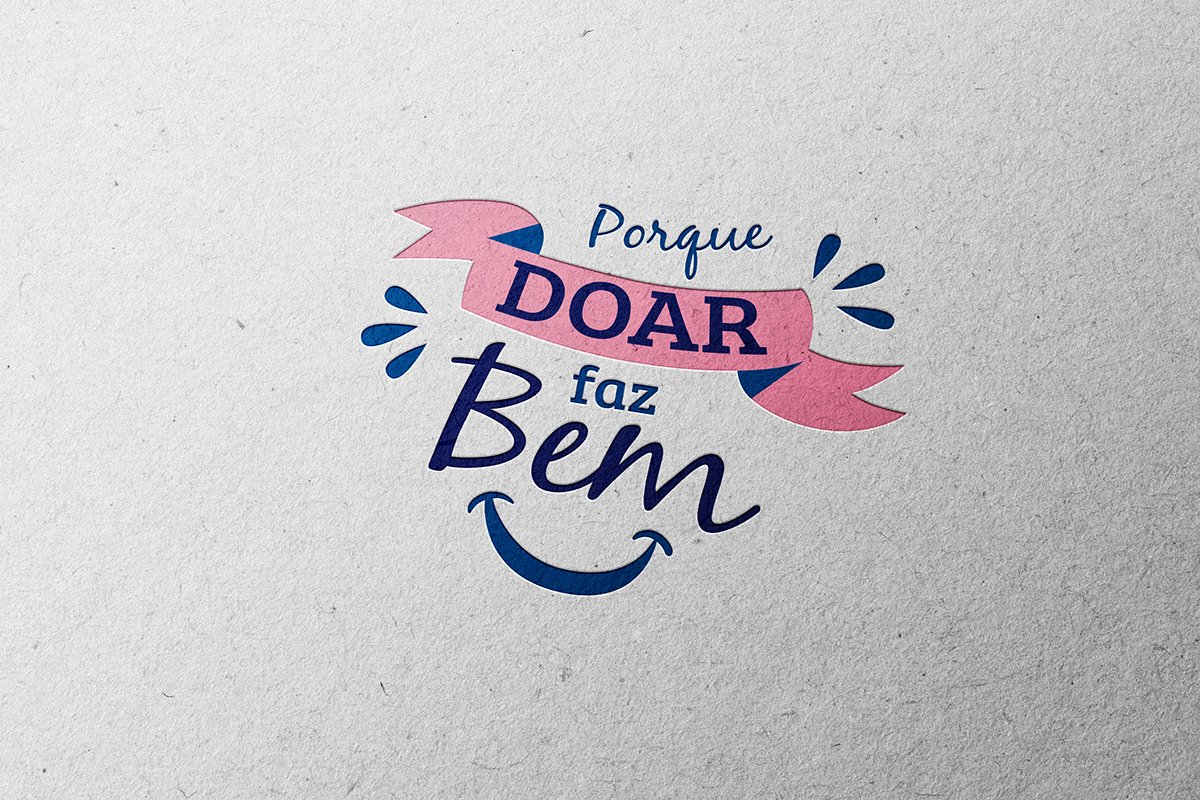 Porque
DOAR
faz
Bem